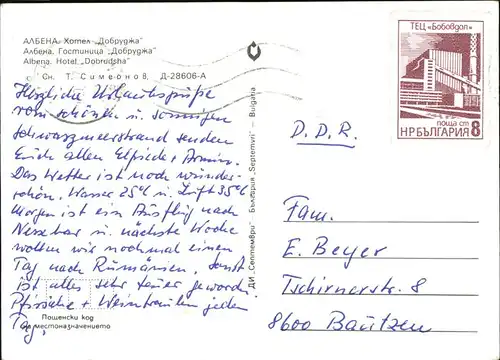 АЛБЕНА. Хотел „Добруджа“
Албена. Гостиница „Добруджа“
Albena. Hotel „Dobrudsha“
Сн. Т. Симеонов, Д-28606-А
Herzliche Urlaubsgrüße
vom schönen u. sonnigen
Schwarzmeerstrand senden
Euch allen Elfriede + Armin.
Das Wetter ist noch wunder-
schön. Wasser 25°C u. Luft 35°C
Morgen ist ein Ausflug nach
Nessebar u. nächste Woche
wollen wir nochmal einen
Tag nach Rumänien. Sonst
ist alles sehr teuer geworden.
Pfirsiche + Weintrauben jeden
Tag,
Пощенски код
на местоназначението
ДИ „Септември“ — България „Septemvri“ — Bulgaria
ТЕЦ „Бобовдол“
поща ст
НР БЪЛГАРИЯ 8
D. D. R.
Fam.
E. Beyer
Tschirnerstr. 8
8600 Bautzen